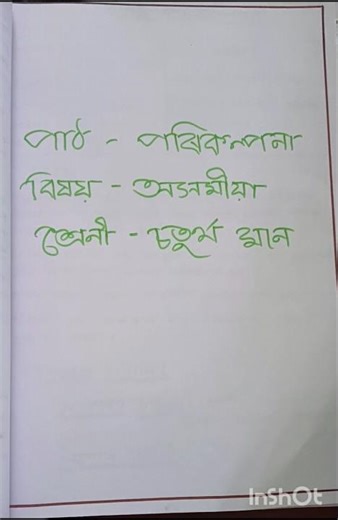 পাঠ - পৰিকল্পনা
বিষয় - অসমীয়া
শ্ৰেনী - চতুৰ্থ মান
InShOt